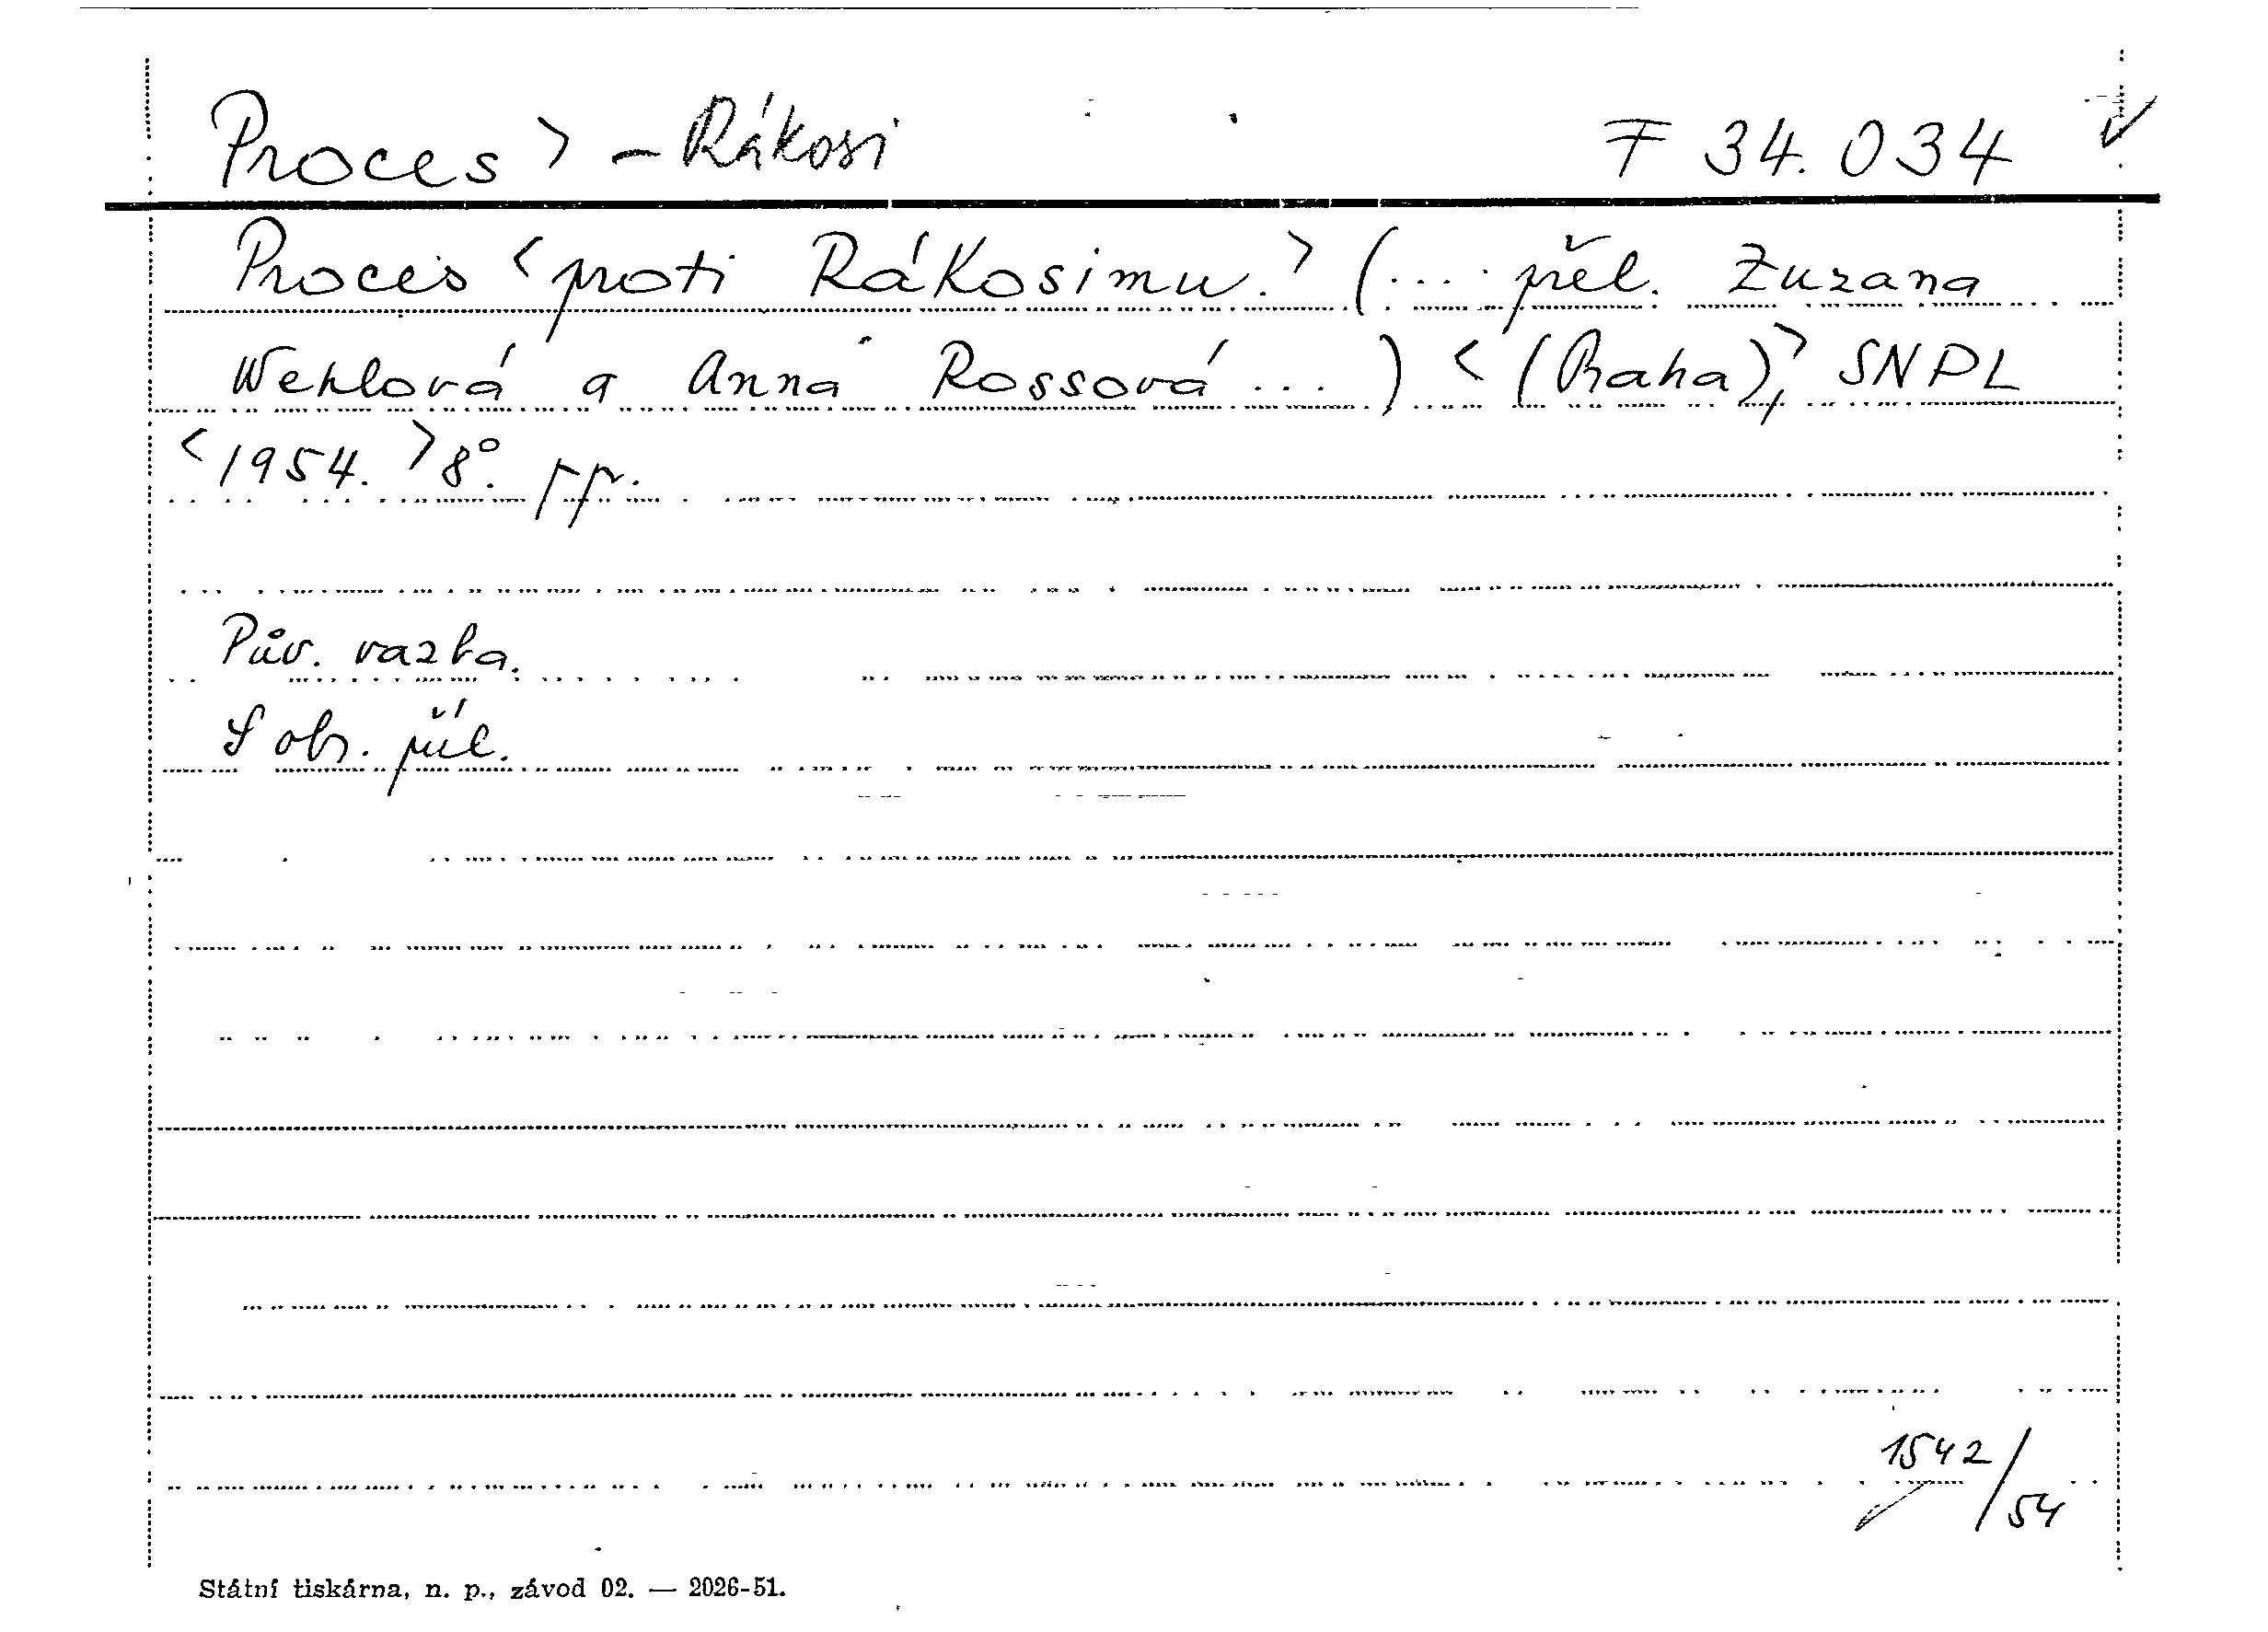 Proces > - Rákosi F 34.034 ✓
Proces < proti Rákosimu. > (... přel. Zuzana
Wehlová a Anna Rossová ... ) < (Praha), > SNPL
< 1954. > 8°. pp.
Pův. vazba.
S obr. příl.
1542/54
Státní tiskárna, n. p., závod 02. — 2026-51.